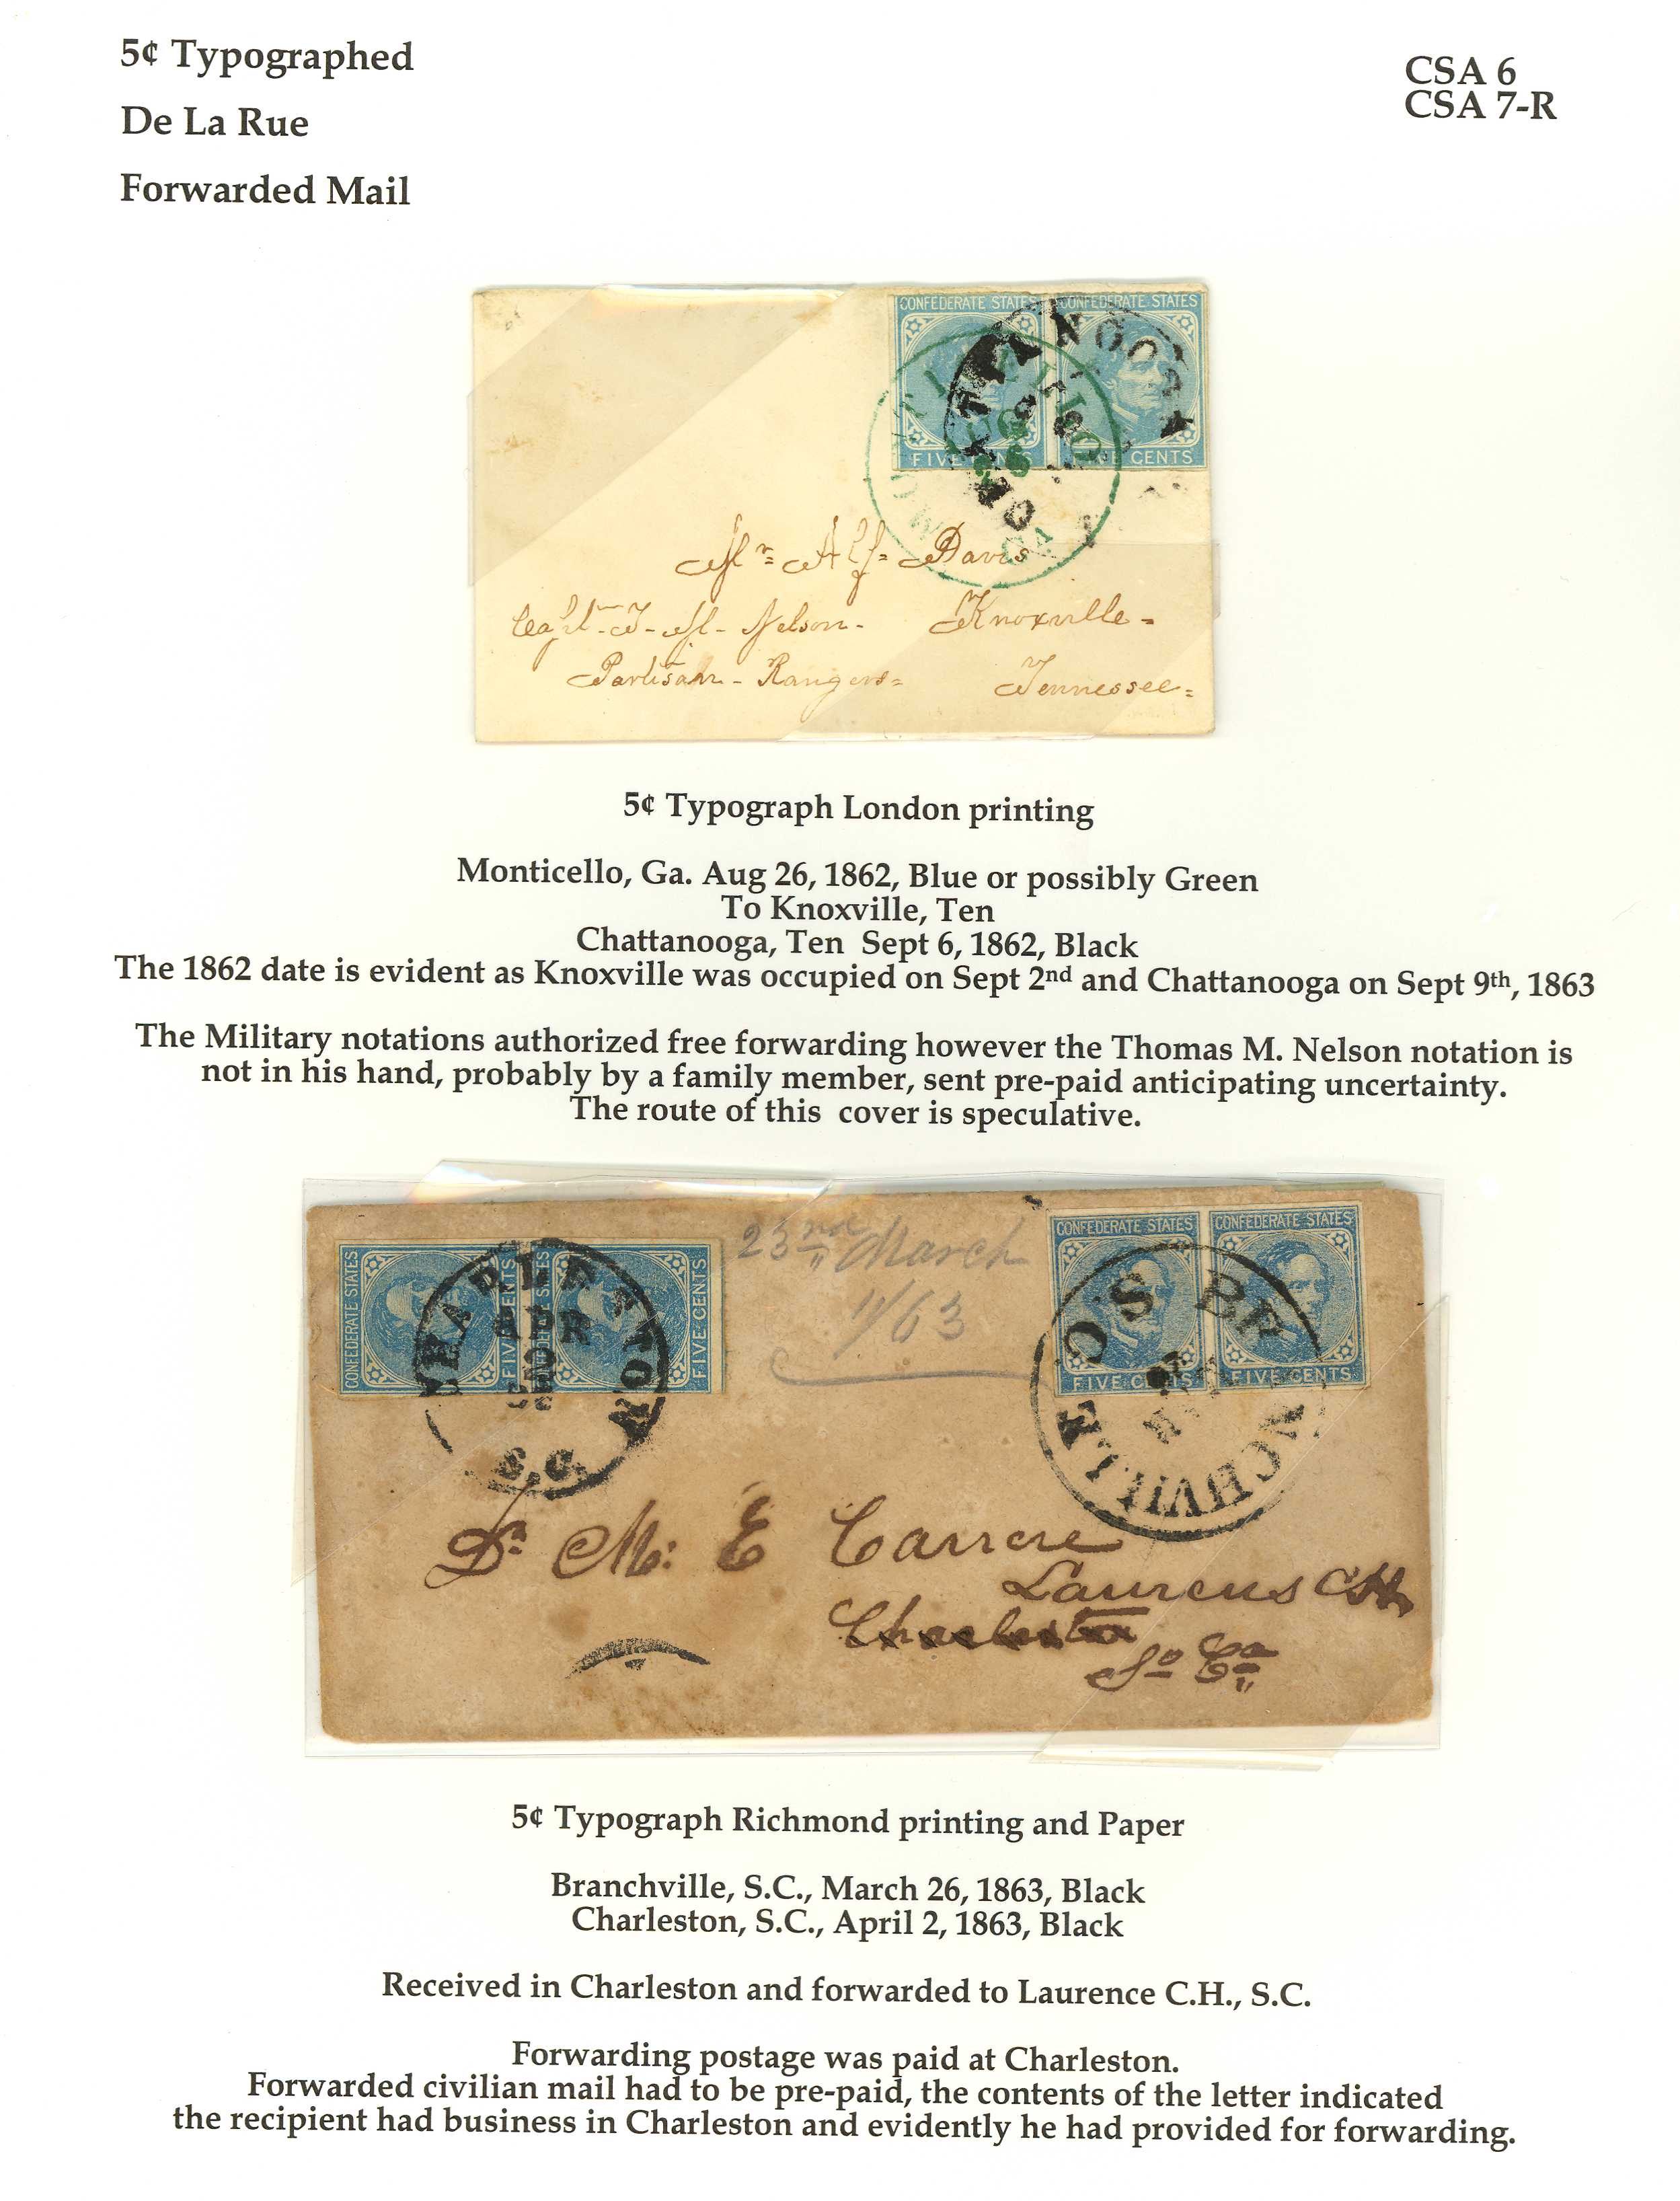 5¢ Typographed
CSA 6
CSA 7-R
De La Rue
Forwarded Mail
CONFEDERATE STATES CONFEDERATE STATES
FIVE CENTS FIVE CENTS
MONTICELLO GA
Mr. Alf. Davis
Capt. T. M. Nelson. Knoxville
Partisan Rangers Tennessee
5¢ Typograph London printing
Monticello, Ga. Aug 26, 1862, Blue or possibly Green
To Knoxville, Ten
Chattanooga, Ten Sept 6, 1862, Black
The 1862 date is evident as Knoxville was occupied on Sept 2nd and Chattanooga on Sept 9th, 1863
The Military notations authorized free forwarding however the Thomas M. Nelson notation is
not in his hand, probably by a family member, sent pre-paid anticipating uncertainty.
The route of this cover is speculative.
CONFEDERATE STATES FIVE CENTS
CONFEDERATE STATES FIVE CENTS
CHARLESTON APR 2 S.C.
23rd March
1/63
CONFEDERATE STATES CONFEDERATE STATES
FIVE CENTS FIVE CENTS
BRANCHVILLE SO.
Dr. M: E Carrere
Laurens CH
Charleston
So Ca
5¢ Typograph Richmond printing and Paper
Branchville, S.C., March 26, 1863, Black
Charleston, S.C., April 2, 1863, Black
Received in Charleston and forwarded to Laurence C.H., S.C.
Forwarding postage was paid at Charleston.
Forwarded civilian mail had to be pre-paid, the contents of the letter indicated
the recipient had business in Charleston and evidently he had provided for forwarding.